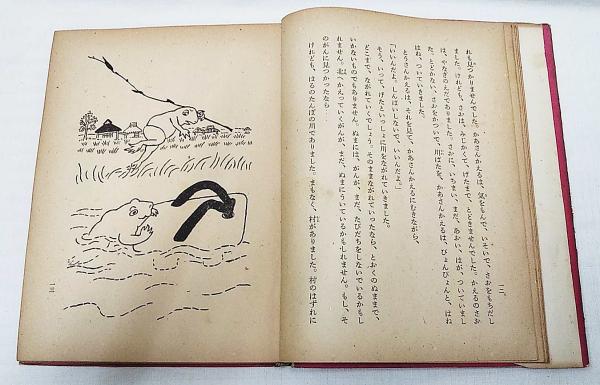 一二
れも見つかりませんでした。かあさんかえるは、気をもんで、いそいで、さおをもちだし
ました。けれども、さおは、みじかくて、げたまで、とどきませんでした。かえるのさお
は、やなぎのえだでありました。さおに、いちまい、まだ、あおい、はが、ついていまし
た。とどかない、さおをかついで、川ばたを、かあさんかえるは、ぴょんぴょんと、はね
はね、ついていきました。
とうさんかえるは、それを見て、かあさんかえるにむきながら、
「いいんだよ。しんぱいしないで、いいんだよ。」
そう、いって、げたといっしょに川をながれていきました。
どこまで、ながれていくでしょう。そのままながれていったなら、とおくのぬままで、
いかないものでもありません。ぬまには、がんが、まだ、たびだちをしないでいるかもし
れません。北へかえっていくがんが、まだ、ぬまにういているかもしれません。もし、そ
のがんに見つかったなら……
けれども、はるのたんぼの川でありました。まもなく、村がありました。村のはずれに
一三